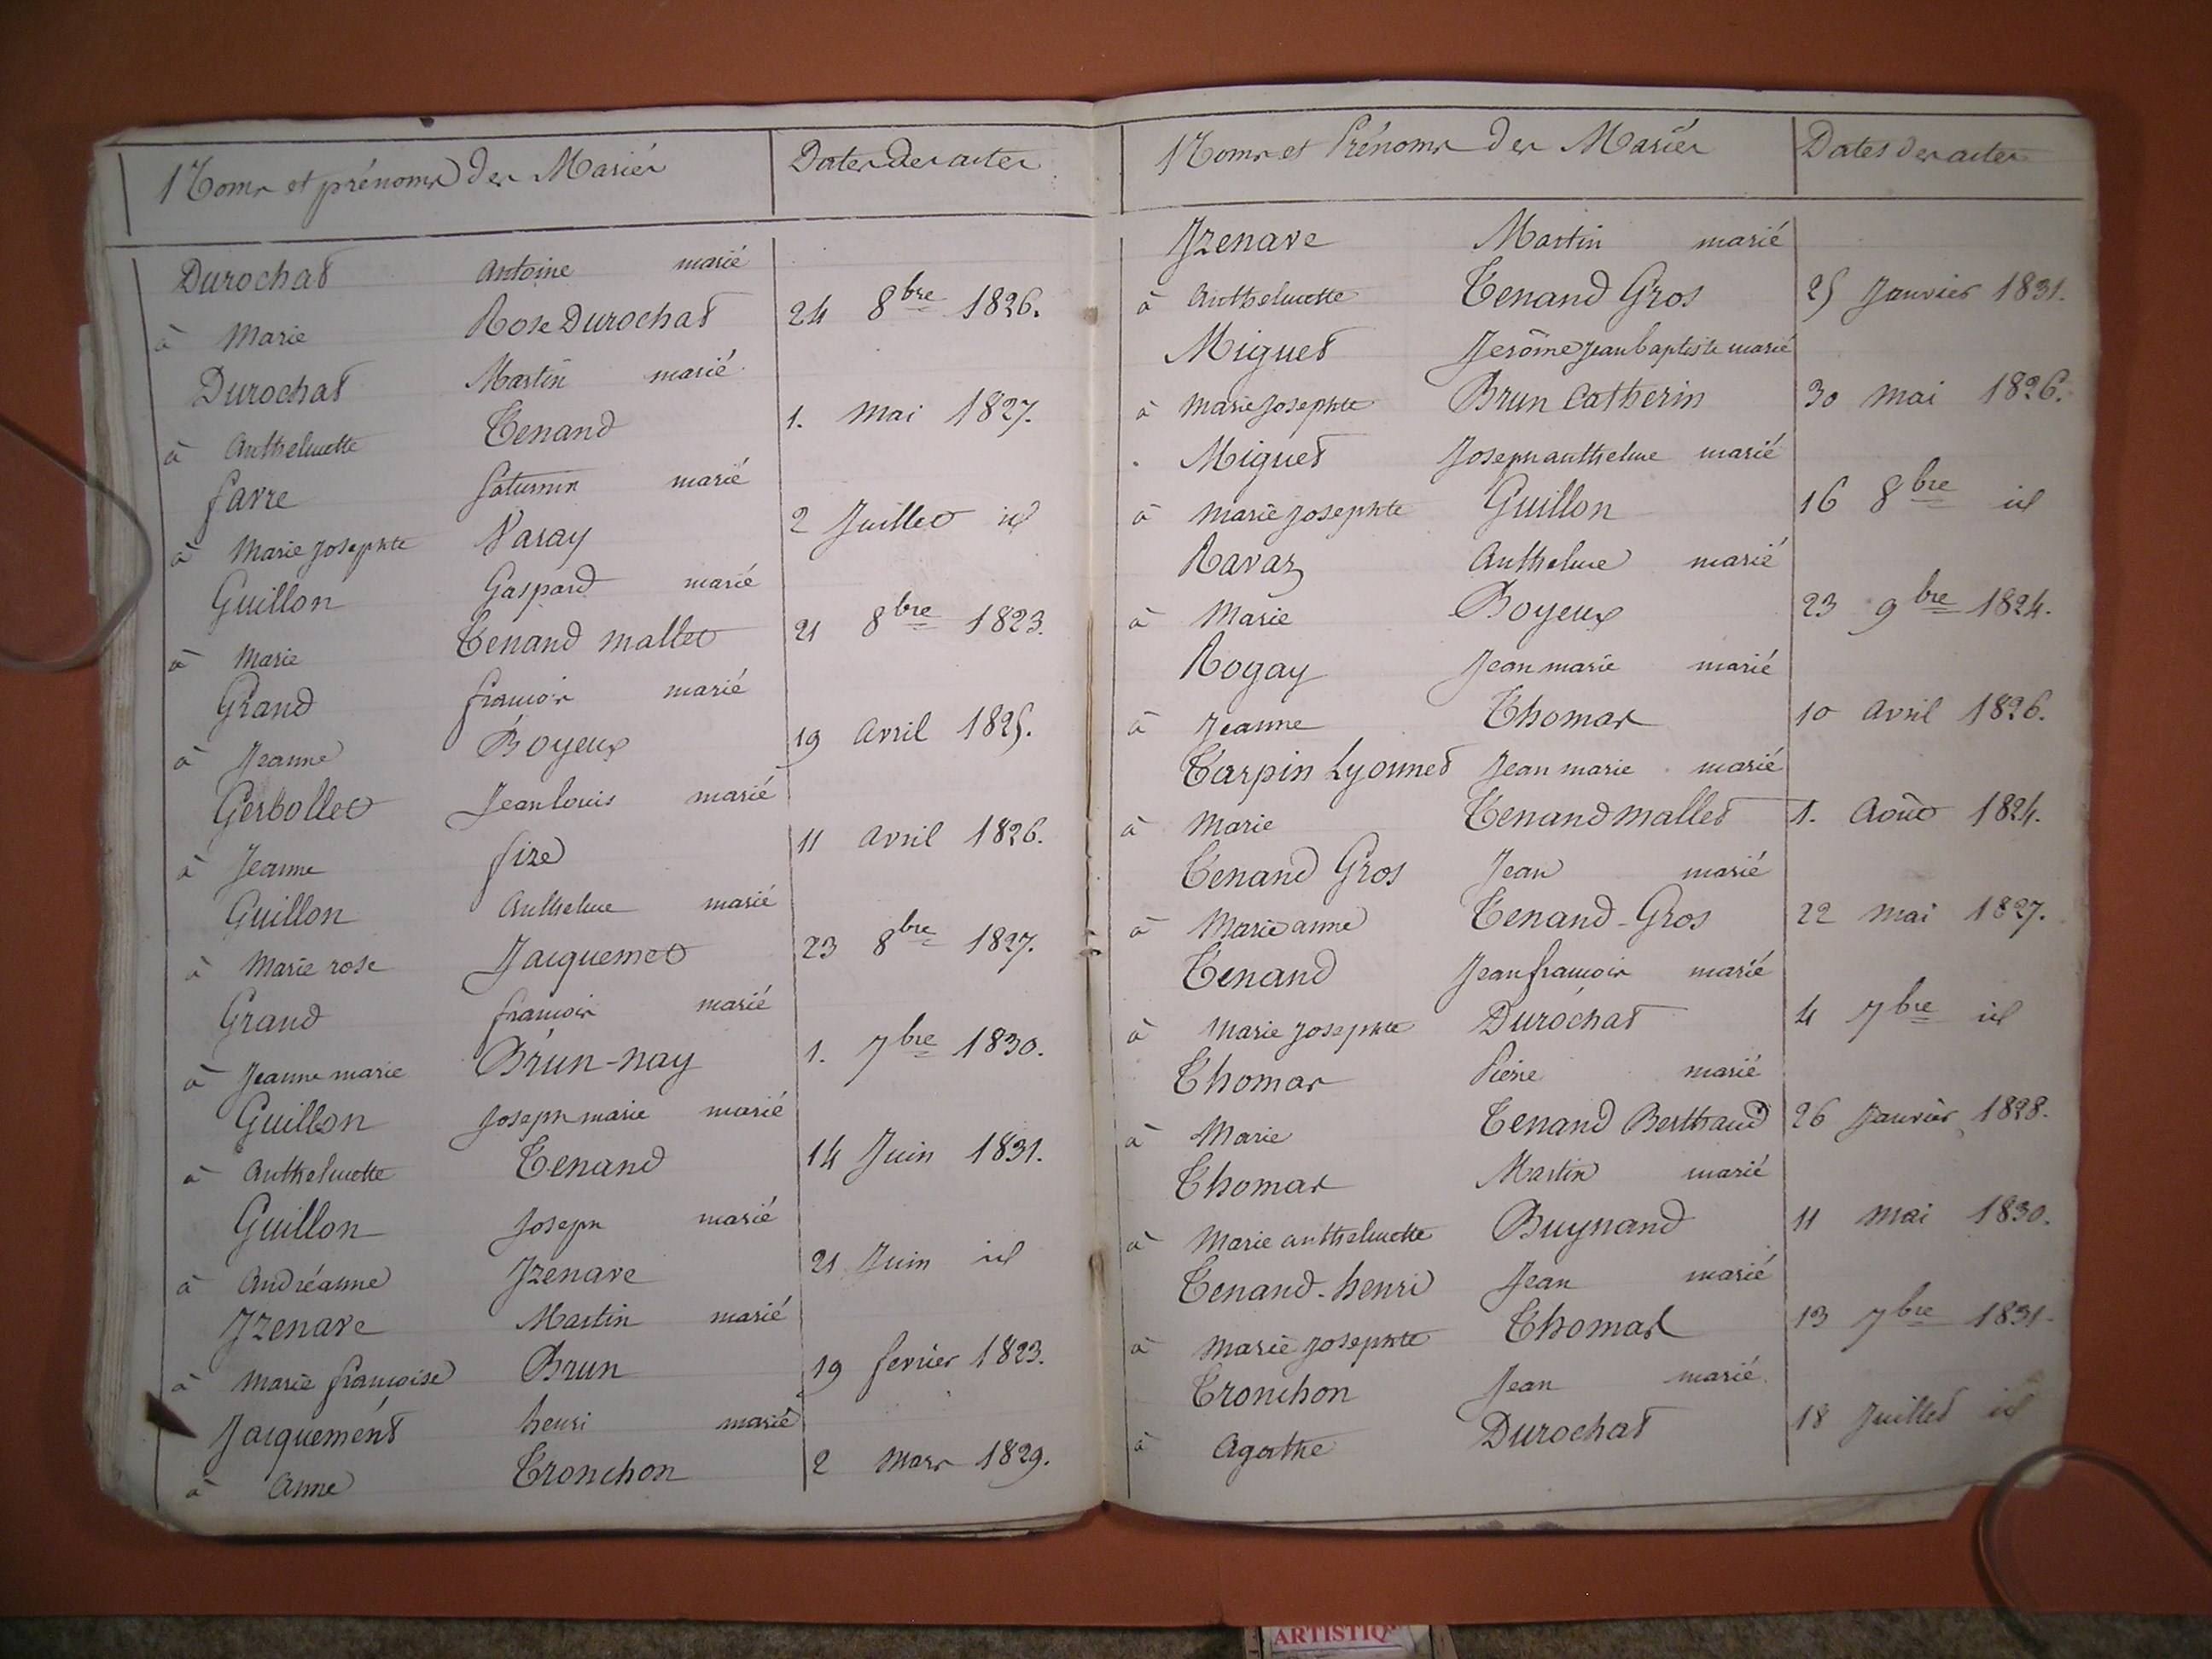 Noms et prénoms des Mariés Dates des actes
Durochat Antoine marié
à Marie Rose Durochat 24 8bre 1826.
Durochat Martin marié
à Anthelmette Tenand 1. Mai 1827.
favre Saturnin marié
à Marie Josephte Varay 2 Juillet id
Guillon Gaspard marié
à Marie Tenand mallet 21 8bre 1823.
Grand francois marié
à Jeanne Boyeux 19 Avril 1825.
Gerbollet Jean louis marié
à Jeanne fize 11 avril 1826.
Guillon Anthelme marié
à Marie rose Jacquemet 23 8bre 1827.
Grand francois marié
à Jeanne marie Brun-nay 1. 7bre 1830.
Guillon Joseph marie marié
à Anthelmette Tenand 14 Juin 1831.
Guillon Joseph marié
à Andréanne Jzenave 21 Juin id
Jzenave Martin marié
à Marie francoise Brun 19 fevrier 1823.
Jacquemént henri marié
à Anne Tronchon 2 Mars 1829.
Noms et Prénoms des Mariés Dates des actes
Jzenave Martin marié
à Anthelmette Tenand Gros 25 Janvier 1831.
Miguet Jerôme Jean baptiste marié
à Marie Josephte Brun Catherin 30 Mai 1826.
Miguet Joseph anthelme marié
à Marie Josephte Guillon 16 8bre id
Ravaz Anthelme marié
à Marie Boyeux 23 9bre 1824.
Rogay Jean marie marié
à Jeanne Thomas 10 Avril 1826.
Tarpin Lyonnet Jean marie marié
à Marie Tenand mallet 1. Août 1824.
Tenand Gros Jean marié
à Marie anne Tenand-Gros 22 Mai 1827.
Tenand Jean francois marié
à Marie Josephte Durochat 4 7bre id
Thomas Pierre marié
à Marie Tenand Berthaud 26 Janvier 1828.
Thomas Martin marié
à Marie anthelmette Buynand 11 Mai 1830.
Tenand-henri Jean marié
à Marie Josephte Thomas 13 7bre 1831.
Tronchon Jean marié
à Agathe Durochat 18 Juillet id
ARTISTIQ